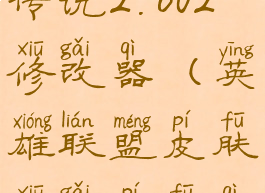 传说2.002
xiū gǎi qì yīng
修改器（英
xióng lián méng pí fū
雄联盟皮肤
xiū gǎi pí fū qì